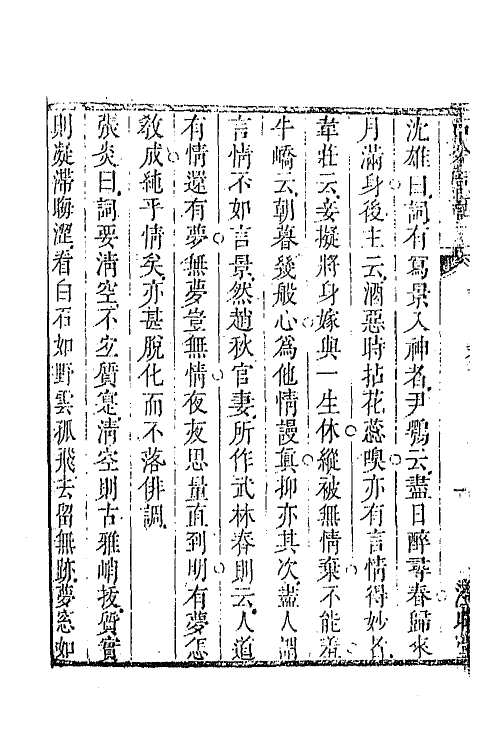 沈雄曰詞有寫景入神者尹鶚云盡日醉尋春歸來
月滿身後主云酒惡時拈花蕊嗅亦有言情得妙者
韋莊云妾擬將身嫁與一生休縱被無情棄不能羞
牛嶠云朝暮幾般心為他情謾真抑亦其次蓋人謂
言情不如言景然趙秋官妻所作武林春則云人道
有情還有夢無夢豈無情夜夜思量直到明有夢怎
敎成純乎情矣亦甚脫化而不落俳調
張炎曰詞要清空不宜質寔清空則古雅峭拔質實
則凝滯晦澀看白石如野雲孤飛去留無跡夢窓如